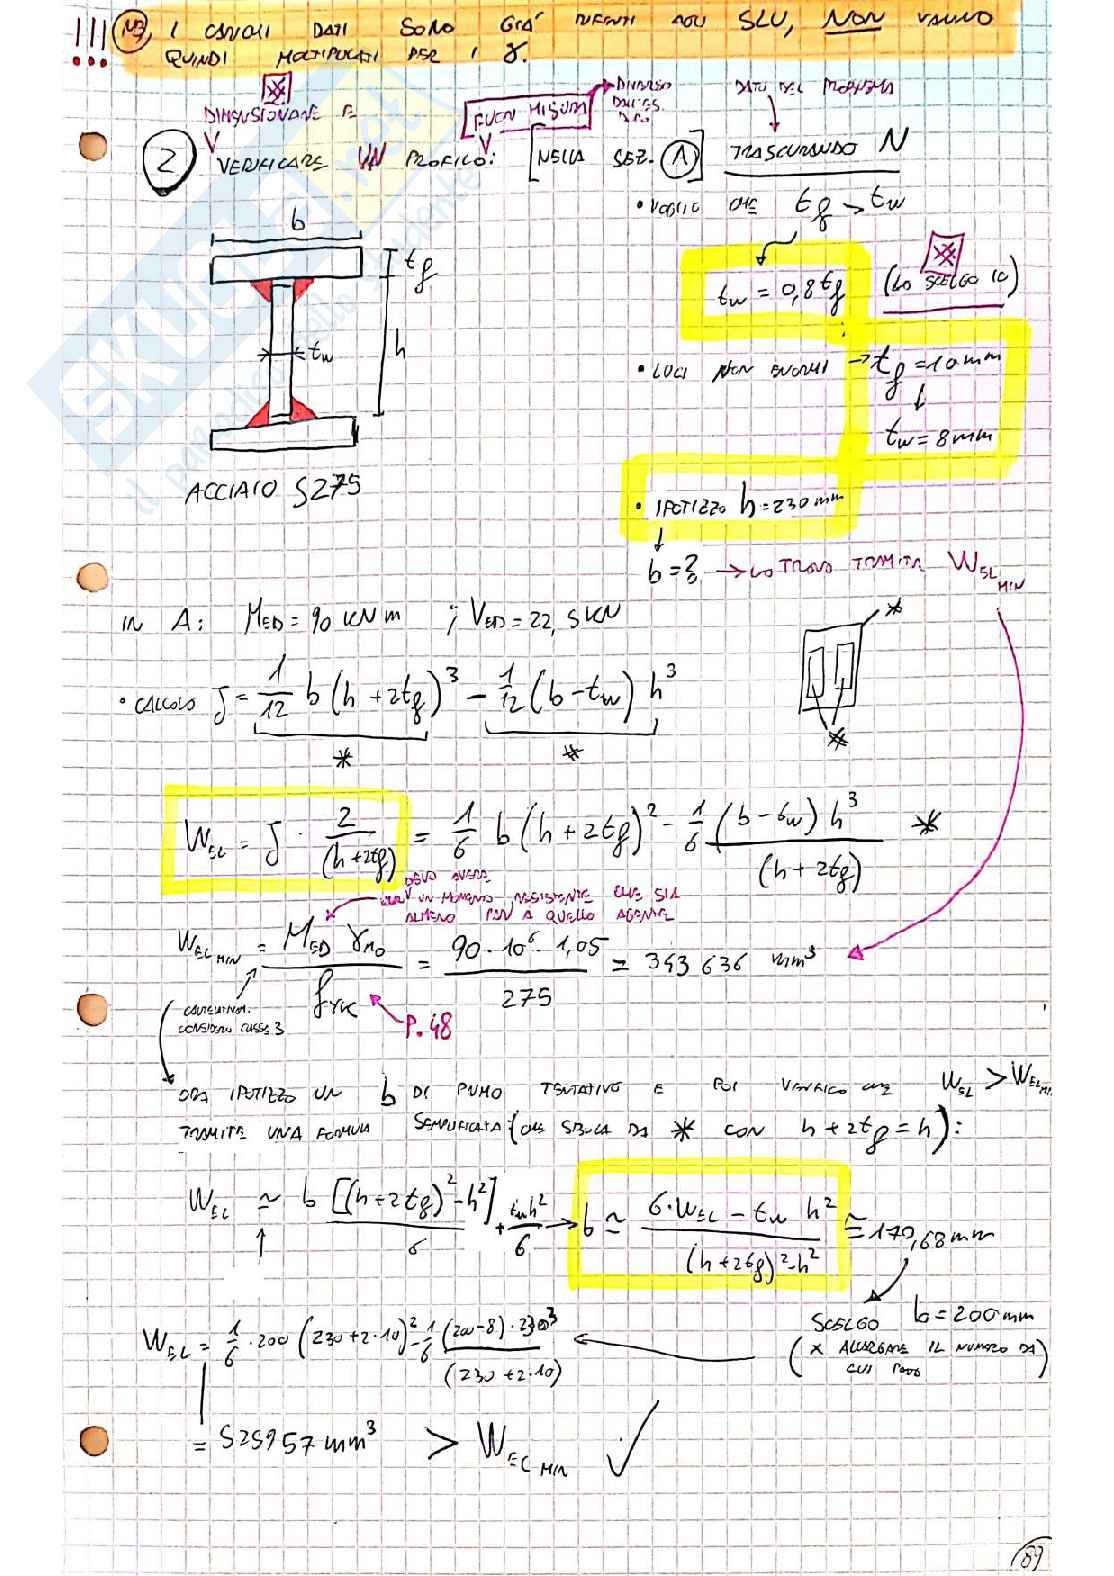 !!! NB, I CARICHI DATI SONO GIÀ RIFERITI AGLI SLU, NON VANNO
QUINDI MOLTIPLICATI PER I γ.
DIMENSIONARE E
② VERIFICARE UN PROFILO:
FUORI MISURA
DIVERSO
[NELLA SEZ. Ⓐ]
DATO DEL PROBLEMA
TRASCURANDO N
• VOGLIO CHE tf > tw
tw = 0,8 tf (LO SCELGO IO)
• LUCI NON ENORMI → tf = 10 mm
tw = 8 mm
• IPOTIZZO h = 230 mm
b = ? → LO TROVO TRAMITE WEL MIN
b
tf
tw
h
ACCIAIO S275
IN A: MED = 90 KN m ; VED = 22,5 KN
• CALCOLO J = 1/12 b (h + 2tf)³ − 1/12 (b − tw) h³
WEL = J · 2/(h + 2tf) = 1/6 b (h + 2tf)² − 1/6 (b − tw) h³/(h + 2tf) *
DEVO AVERE
UN MOMENTO RESISTENTE CHE SIA
ALMENO PARI A QUELLO AGENTE
WEL MIN = MED γM0/fyk = 90 · 10⁶ · 1,05/275 = 343 636 mm³
P. 48
CONSIDERO CLASSE 3
ORA IPOTIZZO UN b DI PRIMO TENTATIVO E POI VERIFICO CHE WEL > WEL MIN
TRAMITE UNA FORMULA SEMPLIFICATA (CHE SBUCA DA * CON h + 2tf = h):
WEL ≃ b [(h + 2tf)² − h²]/6 + tw h²/6 → b ≃ 6 · WEL − tw h²/(h + 2tf)² − h² ≅ 170,68 mm
SCELGO b = 200 mm
(X ALLARGARE IL NUMERO DA
CUI PARTO)
WEL = 1/6 · 200 (230 + 2 · 10)² − 1/6 (200 − 8) · 230³/(230 + 2 · 10)
= 525957 mm³ > WEL MIN ✓
89